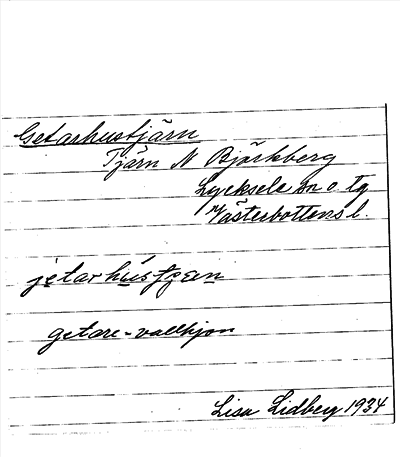 Getarhustjärn
Tjärn N Björkberg
Lycksele sn o. tg
Västerbottens l.
jetarhústjæen
getare = vallhjon
Lisa Lidberg 1934